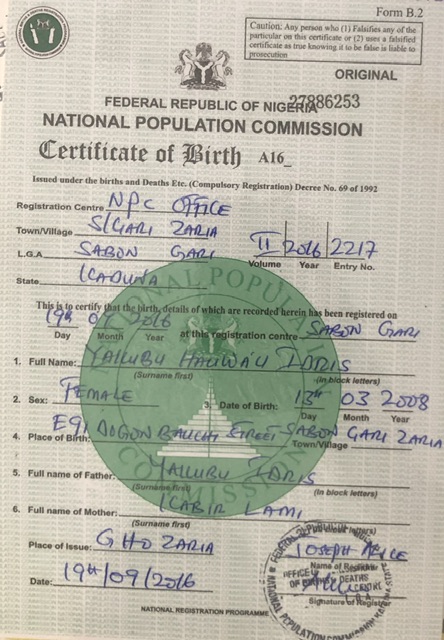 Form B.2
Caution: Any person who (1) Falsifies any of the particular on this certificate or (2) uses a falsified certificate as true knowing it to be false is liable to prosecution
ORIGINAL
FEDERAL REPUBLIC OF NIGERIA 27886253
NATIONAL POPULATION COMMISSION
Certificate of Birth A16_
Issued under the births and Deaths Etc. (Compulsory Registration) Decree No. 69 of 1992
Registration Centre NPC OFFICE
Town/Village S/GARI ZARIA
L.G.A SABON GARI
II 2016 2217
Volume Year Entry No.
State KADUNA
This is to certify that the birth, details of which are recorded herein has been registered on
19th 09 2016 at this registration centre SABON GARI
Day Month Year
1. Full Name: YAKUBU HAUWA'U IDRIS
(Surname first) (In block letters)
2. Sex: FEMALE 3. Date of Birth: 13th 03 2008
Day Month Year
4. Place of Birth: E91 DOGON BAUCHI STREET SABON GARI ZARIA
Town/Village
5. Full name of Father: YAKUBU IDRIS
(Surname first) (In block letters)
6. Full name of Mother: KABIR LAMI
(Surname first) (In block letters)
Place of Issue: GHD ZARIA
JOSEPH ALICE
Name of Registrar
Date: 19th/09/2016
Signature of Registrar
NATIONAL REGISTRATION PROGRAMME
NATIONAL POPULATION COMMISSION